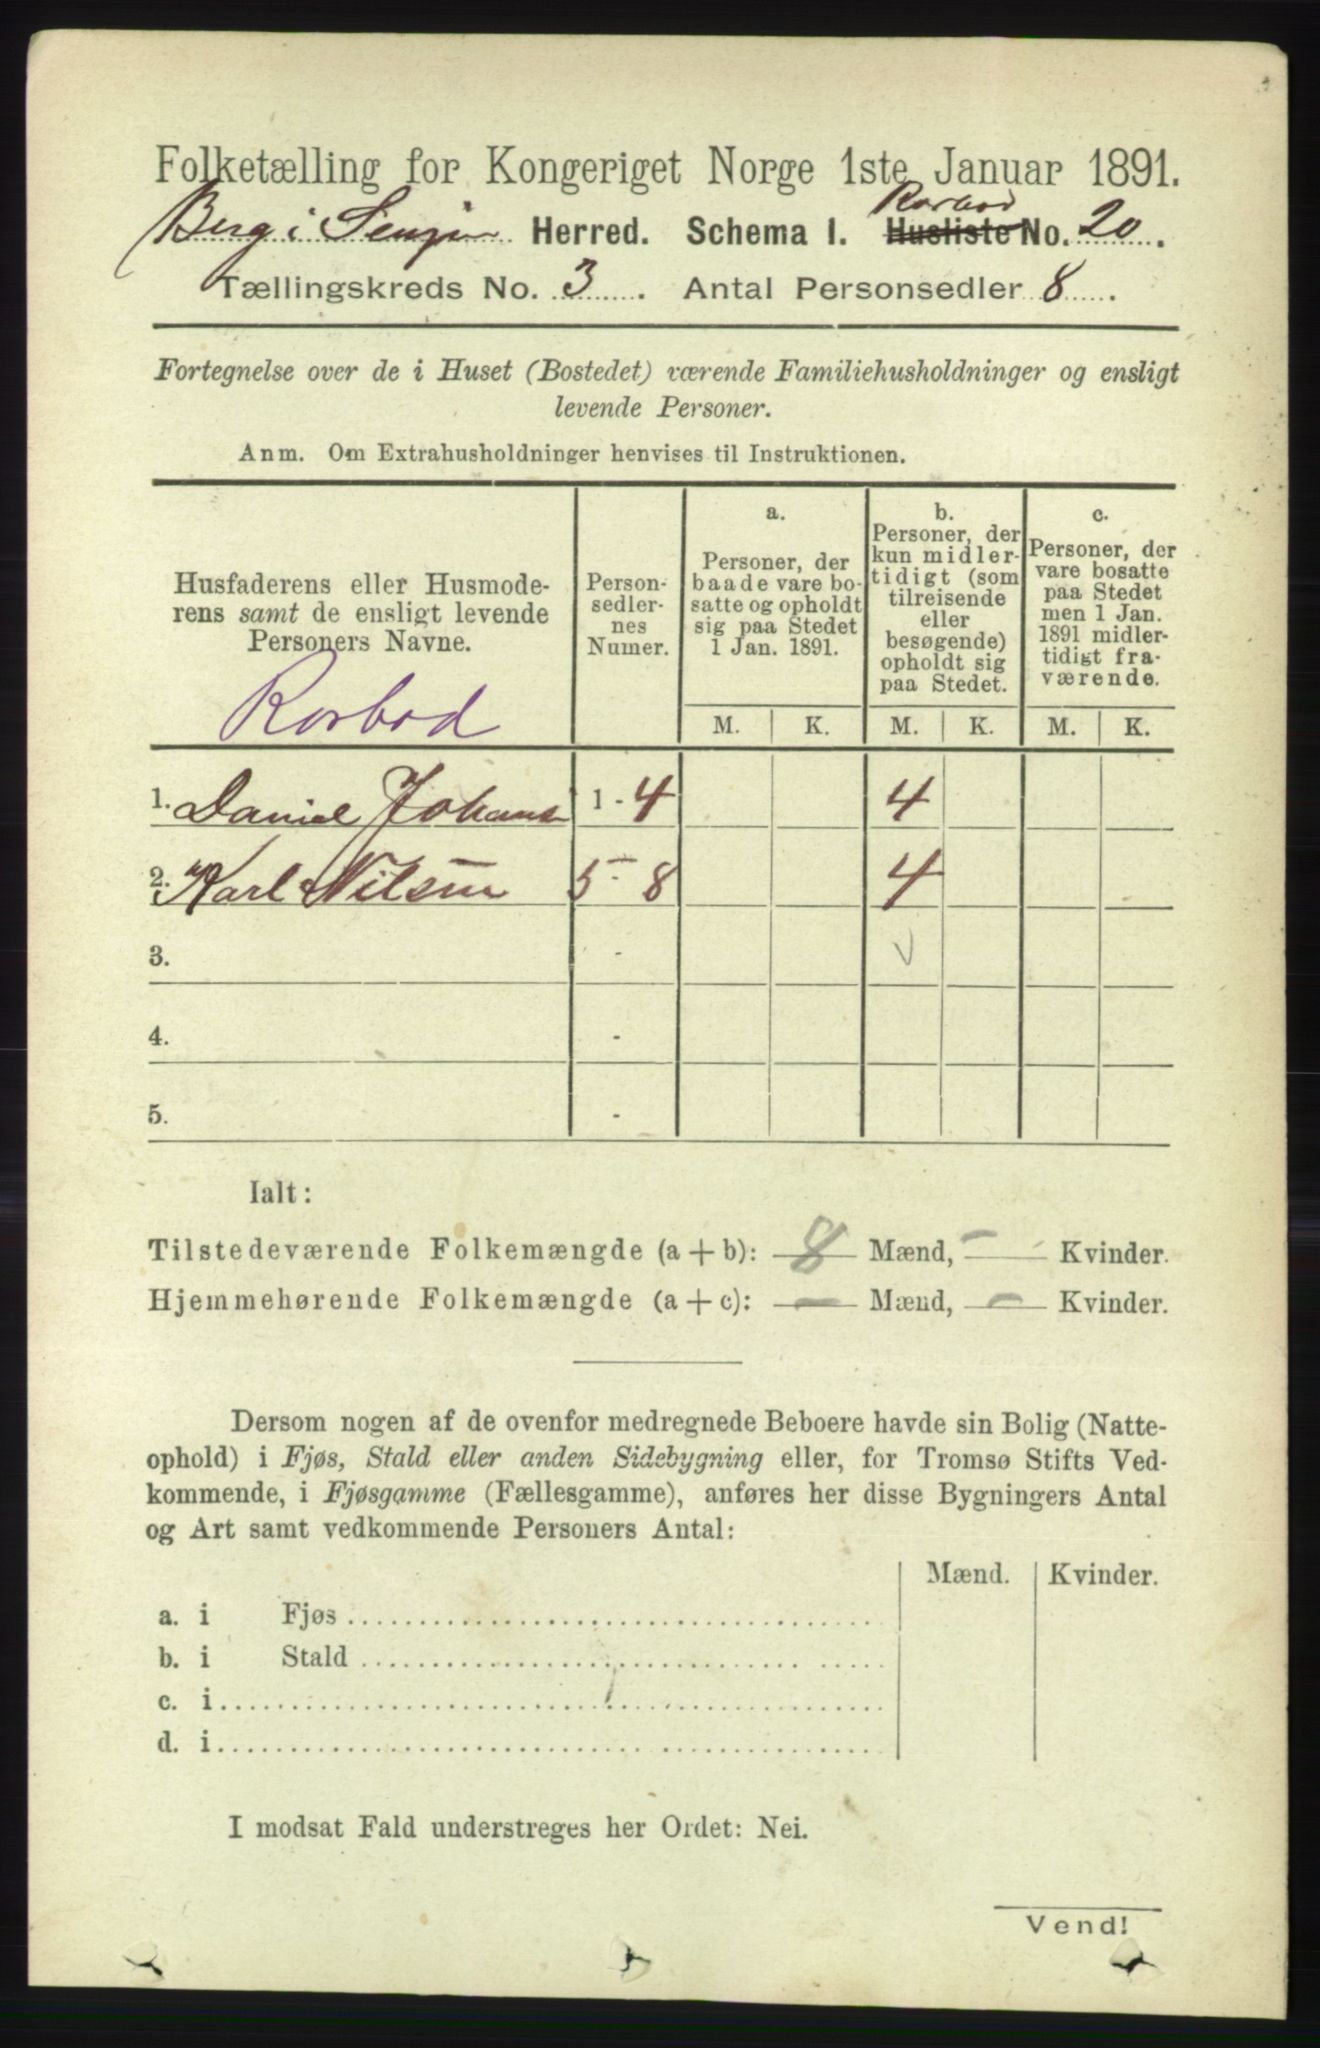 Folketælling for Kongeriget Norge 1ste Januar 1891.
Rorbod
Berg i Senjen Herred. Schema I. Husliste No. 20.
Tællingskreds No. 3. Antal Personsedler 8.
Fortegnelse over de i Huset (Bostedet) værende Familiehusholdninger og ensligt
levende Personer.
Anm. Om Extrahusholdninger henvises til Instruktionen.
Husfaderens eller Husmode-
rens samt de ensligt levende
Personers Navne.
Rorbod
Person-
sedler-
nes
Numer.
a.
Personer, der
baade vare bo-
satte og opholdt
sig paa Stedet
1 Jan. 1891.
b.
Personer, der
kun midler-
tidigt (som
tilreisende
eller
besøgende)
opholdt sig
paa Stedet.
c.
Personer, der
vare bosatte
paa Stedet
men 1 Jan.
1891 midler-
tidigt fra-
værende.
M. K. M. K. M. K.
1. Daniel 1 - 4 4
2. Karl Nilsen 5 - 8 4
3. - v
4. -
5. -
Ialt:
Tilstedeværende Folkemængde (a + b): 8 Mænd, — Kvinder.
Hjemmehørende Folkemængde (a + c): — Mænd, — Kvinder.
Dersom nogen af de ovenfor medregnede Beboere havde sin Bolig (Natte-
ophold) i Fjøs, Stald eller anden Sidebygning eller, for Tromsø Stifts Ved-
kommende, i Fjøsgamme (Fællesgamme), anføres her disse Bygningers Antal
og Art samt vedkommende Personers Antal:
Mænd. Kvinder.
a. i Fjøs
b. i Stald
c. i
d. i
I modsat Fald understreges her Ordet: Nei.
Vend!